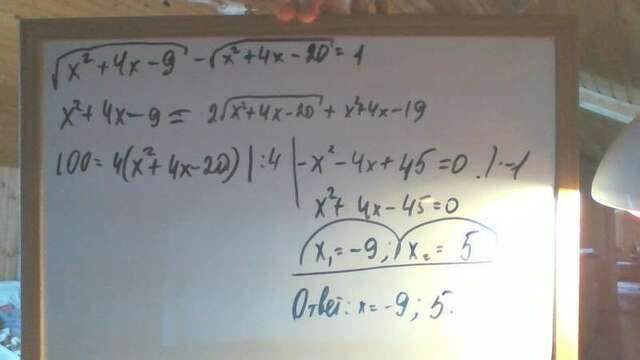 √x²+4x-9 - √x²+4x-20 = 1
x²+4x-9 = 2√x²+4x-20 + x²+4x-19
100=4(x²+4x-20) |:4
-x²-4x+45=0 |·-1
x²+4x-45=0
x₁=-9; x₂= 5
Ответ: x=-9; 5.